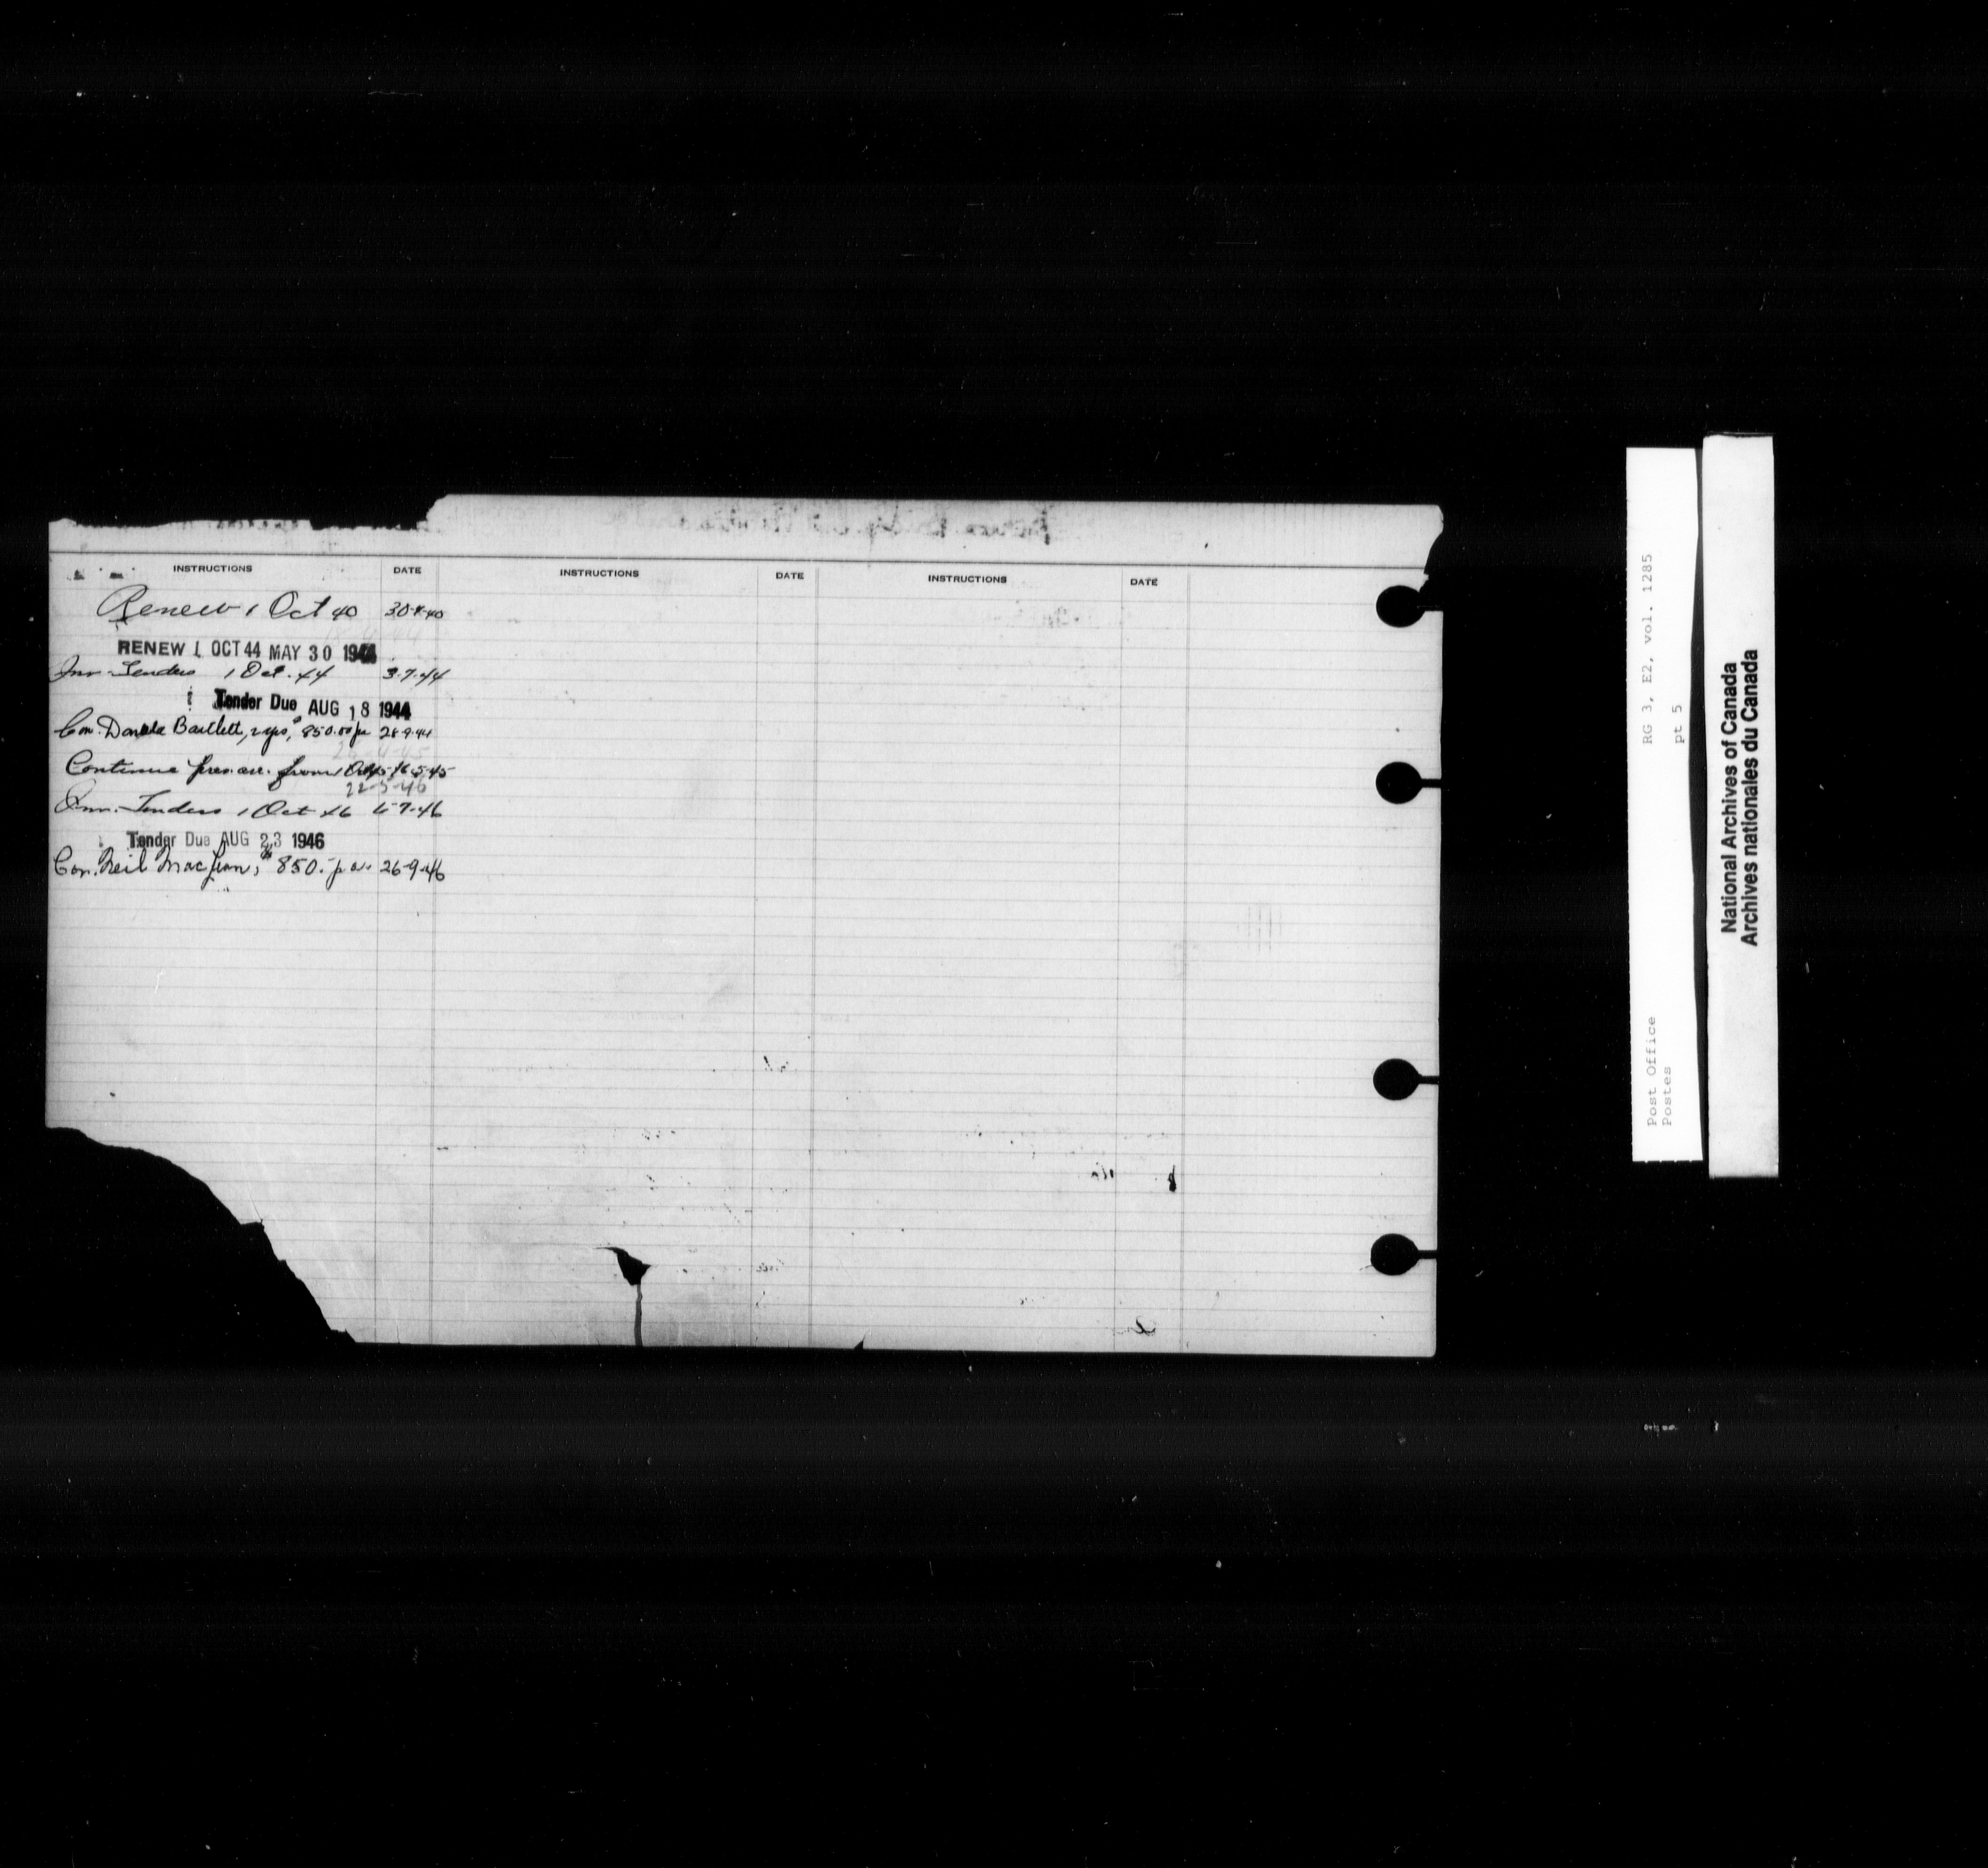 INSTRUCTIONS DATE INSTRUCTIONS DATE INSTRUCTIONS DATE
Renew 1 Oct 40 30-4-40
RENEW 1 OCT 44 MAY 30 1944
Inv. Tenders 1 Oct. 44 3-7-44
Tender Due AUG 18 1944
Con. Donald Bartlett, 2 yrs, $850.00 28-9-44
Continue pres. arr. from 1 Oct 45 16-5-45
22-5-46
Inv. Tenders 1 Oct 46 7-46
Tender Due AUG 23 1946
Con. Neil MacLean, $850. p.a. 26-9-46
RG 3, E2, vol. 1285
pt 5
Post Office
Postes
National Archives of Canada
Archives nationales du Canada